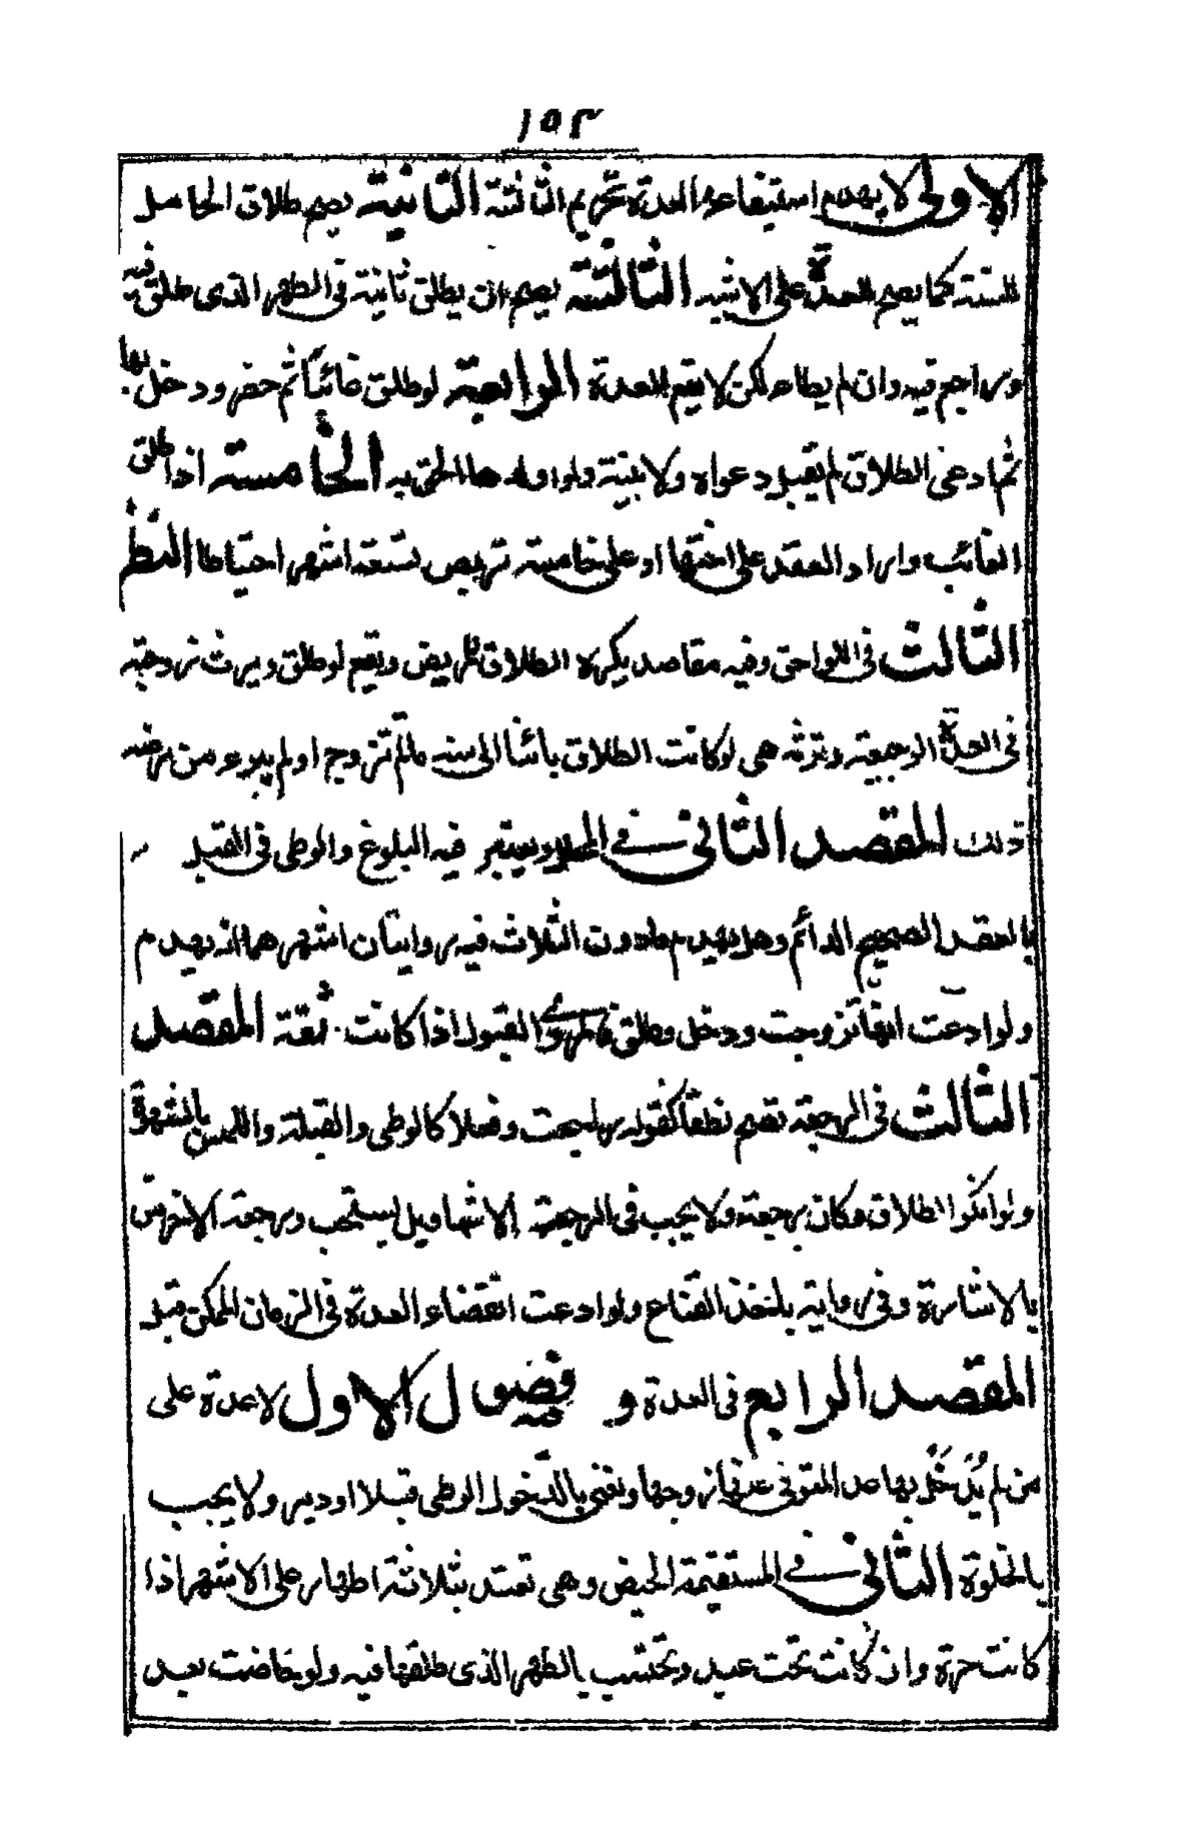 ١٥٣
الاولى لا يهدم استيفاء العدة تحريم الثالثة الثانية يصح طلاق الحامل
للسنة كما يصح للعدة على الاشبه الثالثة يصح ان يطلق ثانية في الطهر الذى طلق فيه
وراجع فيه وان لم يطاء لكن لا يقع للعدة الرابعة لو طلق غائبا ثم حضر ودخل بها
ثم ادعى الطلاق لم يقبل دعواه ولا بينة ولو اولدها الحق به الخامسة اذا طلق
الغائب واراد العقد على اختها او على خامسة تربص تسعة اشهر احتياطا النظر
الثالث في اللواحق وفيه مقاصد يكره الطلاق للمريض ويقع لو طلق ويرث زوجته
في العدة الرجعية وترثه هي لو كانت الطلاق بائنا الى سنة مالم تتزوج او لم يبرء من مرضه
ذلك المقصد الثاني في المحلل ويعتبر فيه البلوغ والوطى في القبل
بالعقد الصحيح الدائم وهل يهدم مادون الثلاث فيه روايتان اشهرهما انه يهدم
ولو ادعت انها تزوجت ودخل وطلق فالمروى القبول اذا كانت ثقة المقصد
الثالث في الرجعة تصح نطقا كقوله راجعت وفعلا كالوطى والقبلة واللمس بالشهوة
ولو انكر الطلاق كان رجعة ولا يجب في الرجعة الاشهاد بل يستحب ورجعة الاخرس
بالاشارة وفي رواية باخذ القناع ولو ادعت انقضاء العدة في الزمان الممكن قبل
المقصد الرابع في العدة و فيه فصول الاول لا عدة على
من لم يدخل بها عدا المتوفى عنها زوجها ونعنى بالدخول الوطى قبلا او دبرا ولا يجب
بالخلوة الثاني في المستقيمة الحيض وهي تعتد بثلاثة اطهار على الاشهر اذا
كانت حرة وان كانت تحت عبد وتحتسب بالطهر الذى طلقها فيه ولو حاضت بعد